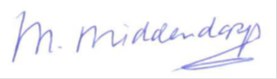 M. Middendorp